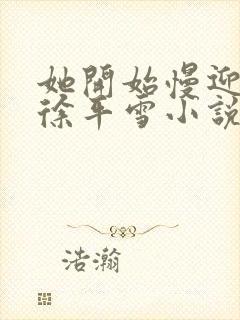 她開始慢迎
徐平雪小說
浩瀚